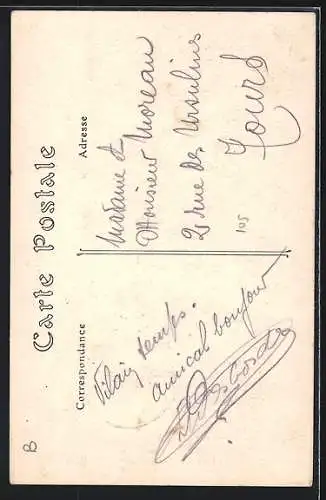 Carte Postale
Correspondance
Adresse
Vilain temps.
amical bonjour
Madame &
Monsieur Moreau
2 rue des Ursulines
Tours
105
B